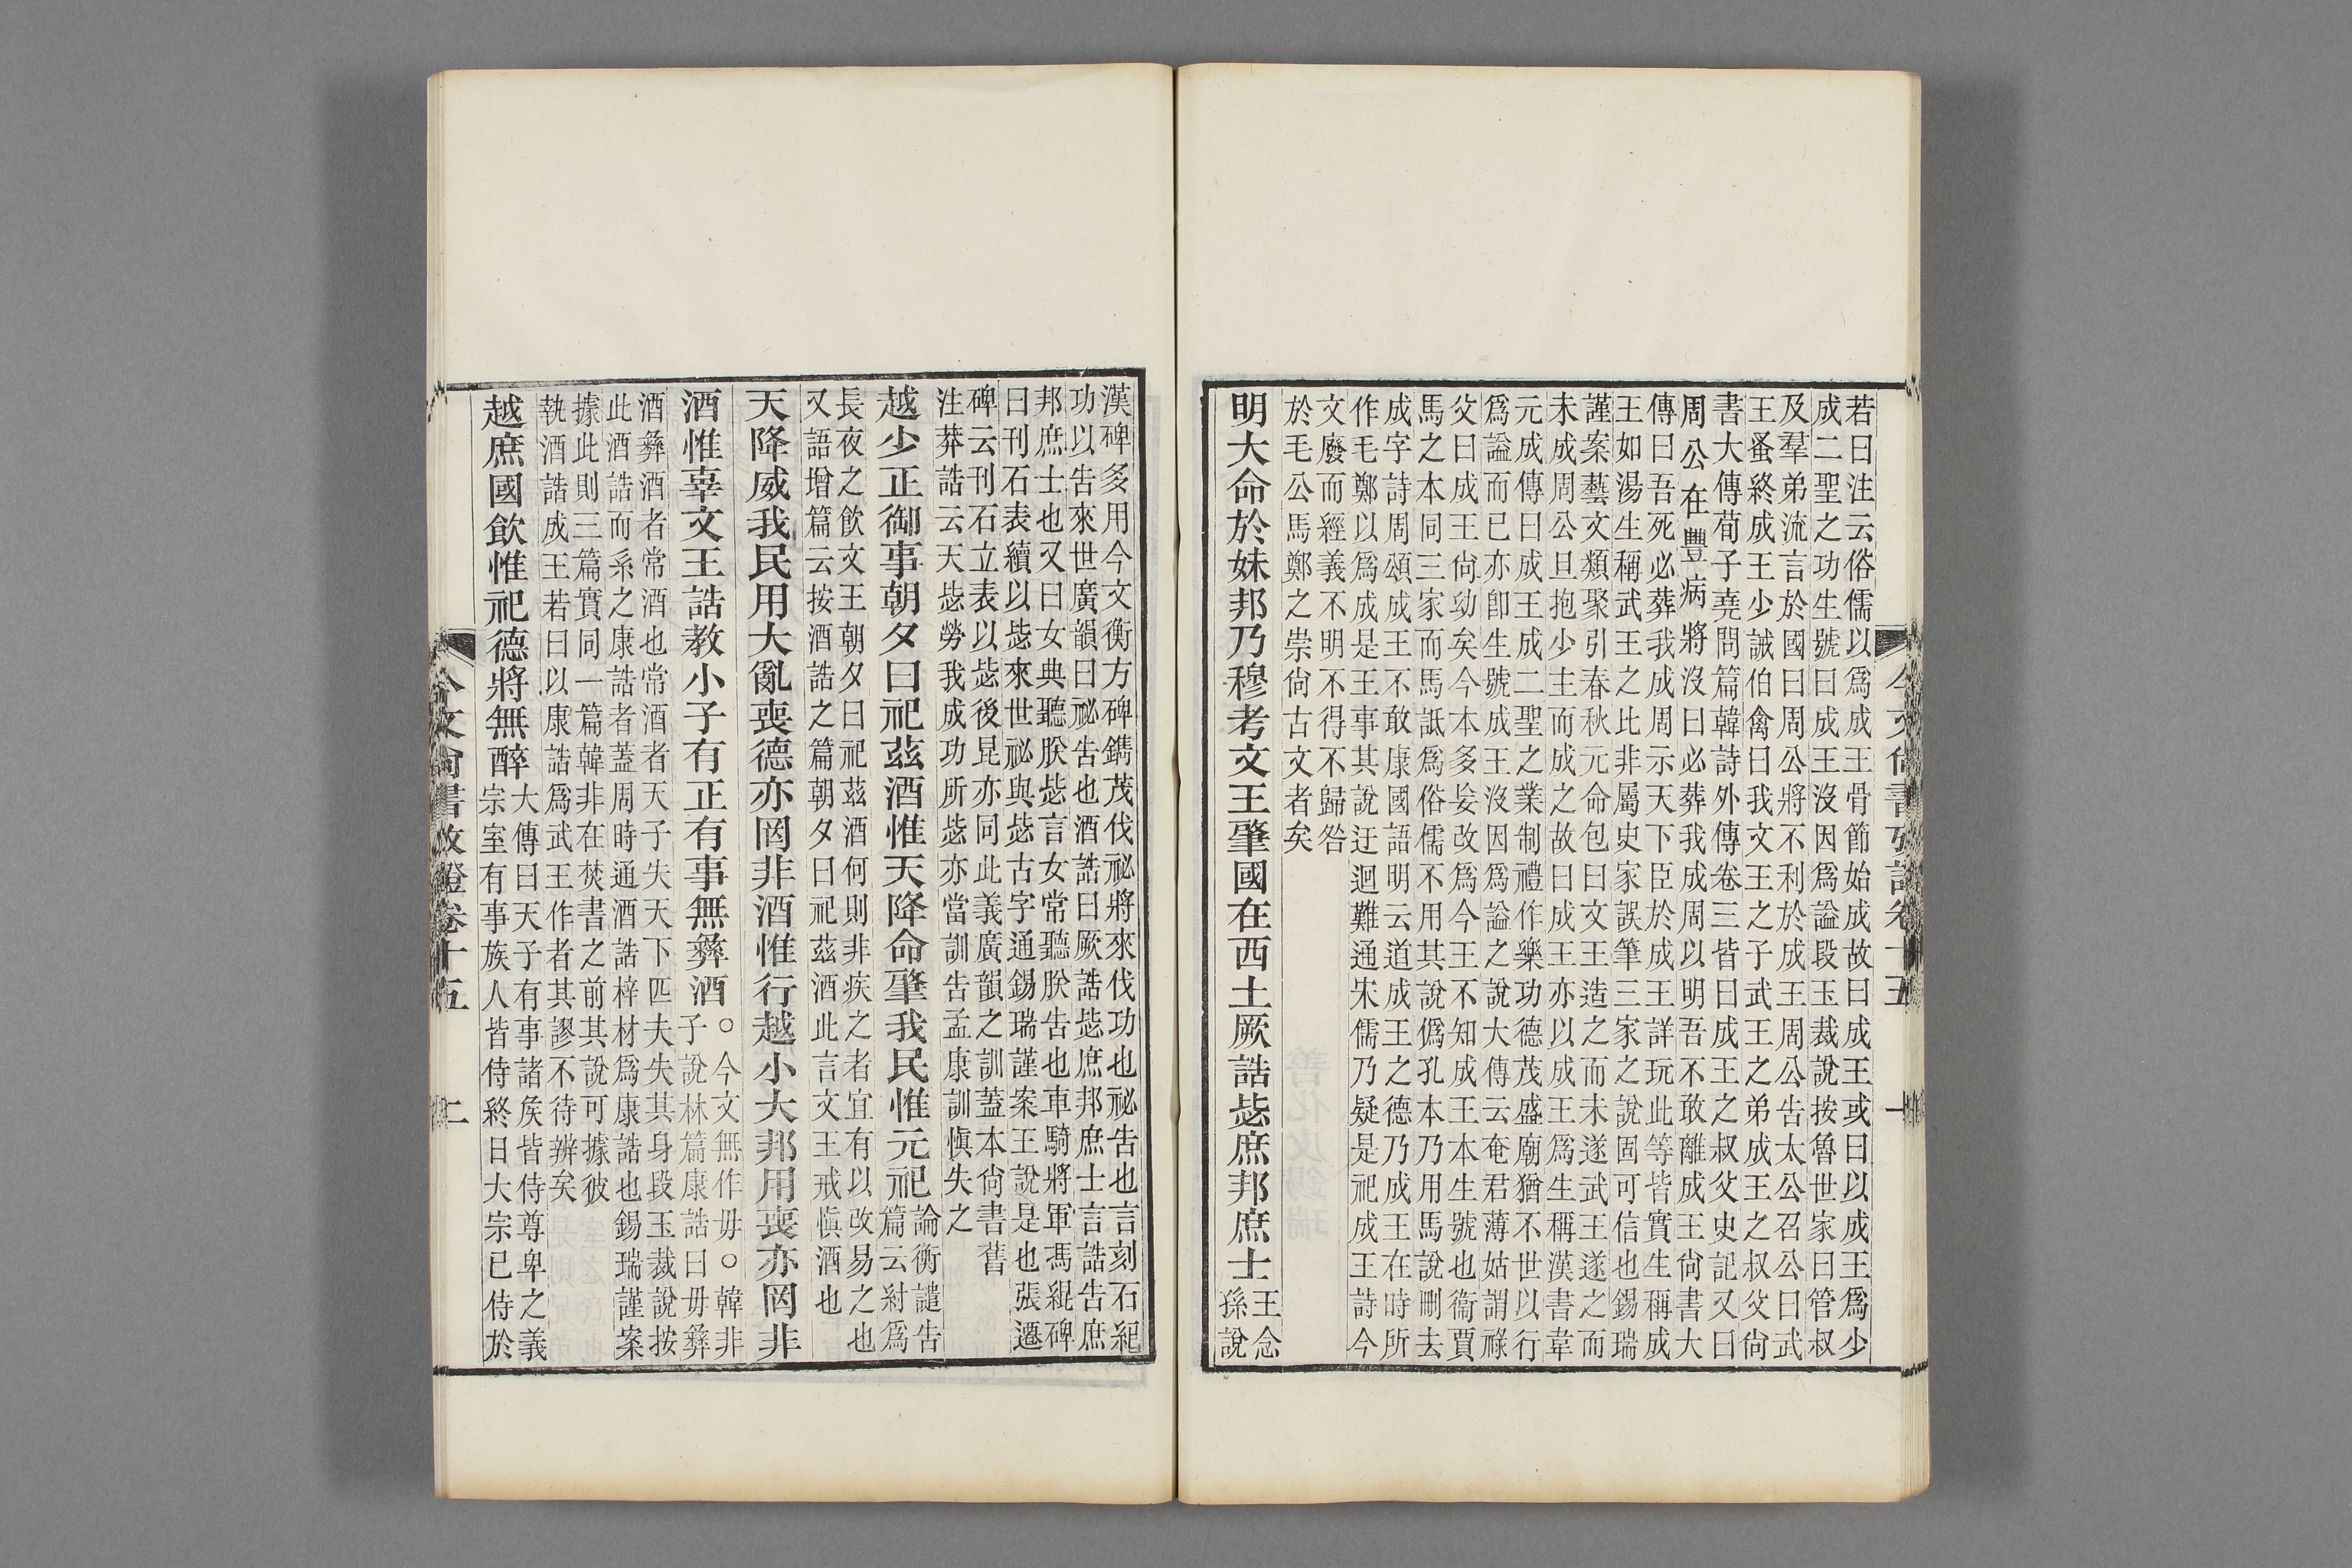 若曰注云俗儒以爲成王骨節始成故曰成王或曰以成王爲少
成二聖之功生號曰成王沒因爲謚段玉裁說按魯世家曰管叔
及羣弟流言於國曰周公將不利於成王周公告太公召公曰武
王蚤終成王少誡伯禽曰我文王之子武王之弟成王之叔父尙
書大傳荀子堯問篇韓詩外傳卷三皆曰成王之叔父史記又曰
周公在豐病將沒曰必葬我成周以明吾不敢離成王尙書大
傳曰吾死必葬我成周示天下臣於成王詳玩此等皆實生稱成
王如湯生稱武王之比非屬史家誤筆三家之說固可信也錫瑞
謹案藝文類聚引春秋元命包曰文王造之而未遂武王遂之而
未成周公旦抱少主而成之故曰成王亦以成王爲生稱漢書韋
元成傳曰成王成二聖之業制禮作樂功德茂盛廟猶不世以行
爲謚而已亦卽生號成王沒因爲謚之說大傳云奄君薄姑謂祿
父曰成王尙幼矣今本多妄改爲今王不知成王本生號也衞賈
馬之本同三家而馬詆爲俗儒不用其說僞孔本乃用馬說刪去
成字詩周頌成王不敢康國語明云道成王之德乃成王在時所
作毛鄭以爲成是王事其說迂迴難通宋儒乃疑是祀成王詩今
文廢而經義不明不得不歸咎
於毛公馬鄭之崇尙古文者矣
明大命於妹邦乃穆考文王肇國在西土厥誥毖庶邦庶士
王念
孫說
漢碑多用今文衡方碑鐫茂伐祕將來伐功也祕告也言刻石紀
功以告來世廣韻曰祕告也酒誥曰厥誥毖庶邦庶士言誥告庶
邦庶士也又曰女典聽朕毖言女常聽朕告也車騎將軍馮緄碑
曰刊石表續以毖來世祕與毖古字通錫瑞謹案王說是也張遷
碑云刊石立表以毖後昆亦同此義廣韻之訓蓋本尙書舊
注莽誥云天毖勞我成功所毖亦當訓告孟康訓愼失之
越少正御事朝夕曰祀茲酒惟天降命肇我民惟元祀
論衡譴告
篇云紂爲
長夜之飲文王朝夕曰祀茲酒何則非疾之者宜有以改易之也
又語增篇云按酒誥之篇朝夕曰祀茲酒此言文王戒愼酒也
天降威我民用大亂喪德亦罔非酒惟行越小大邦用喪亦罔非
酒惟辜文王誥教小子有正有事無彝酒
○今文無作毋○韓非
子說林篇康誥曰毋彝
酒彝酒者常酒也常酒者天子失天下匹夫失其身段玉裁說按
此酒誥而系之康誥者蓋周時通酒誥梓材爲康誥也錫瑞謹案
據此則三篇實同一篇韓非在焚書之前其說可據彼
執酒誥成王若曰以康誥爲武王作者其謬不待辨矣
越庶國飲惟祀德將無醉
大傳曰天子有事諸矦皆侍尊卑之義
宗室有事族人皆侍終日大宗已侍於
今文尙書攷證卷十五
二